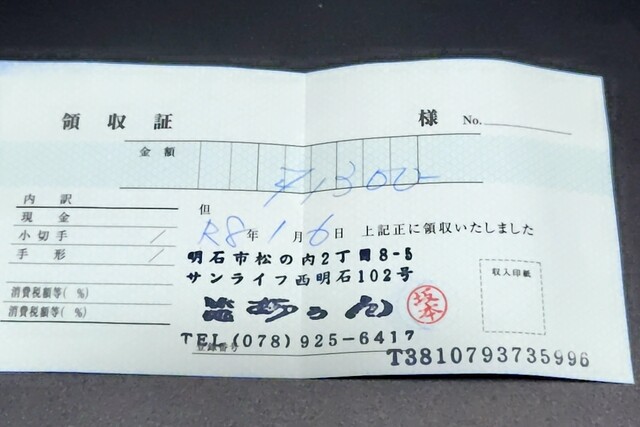 領収証 様 No.
金額 ¥1300-
内訳 但
現金 R8年1月6日 上記正に領収いたしました
小切手 /
手形 /
明石市松の内2丁目8-5
サンライフ西明石102号
収入印紙
消費税額等( %)
消費税額等( %)
坂本
TEL(078)925-6417
登録番号
T3810793735996